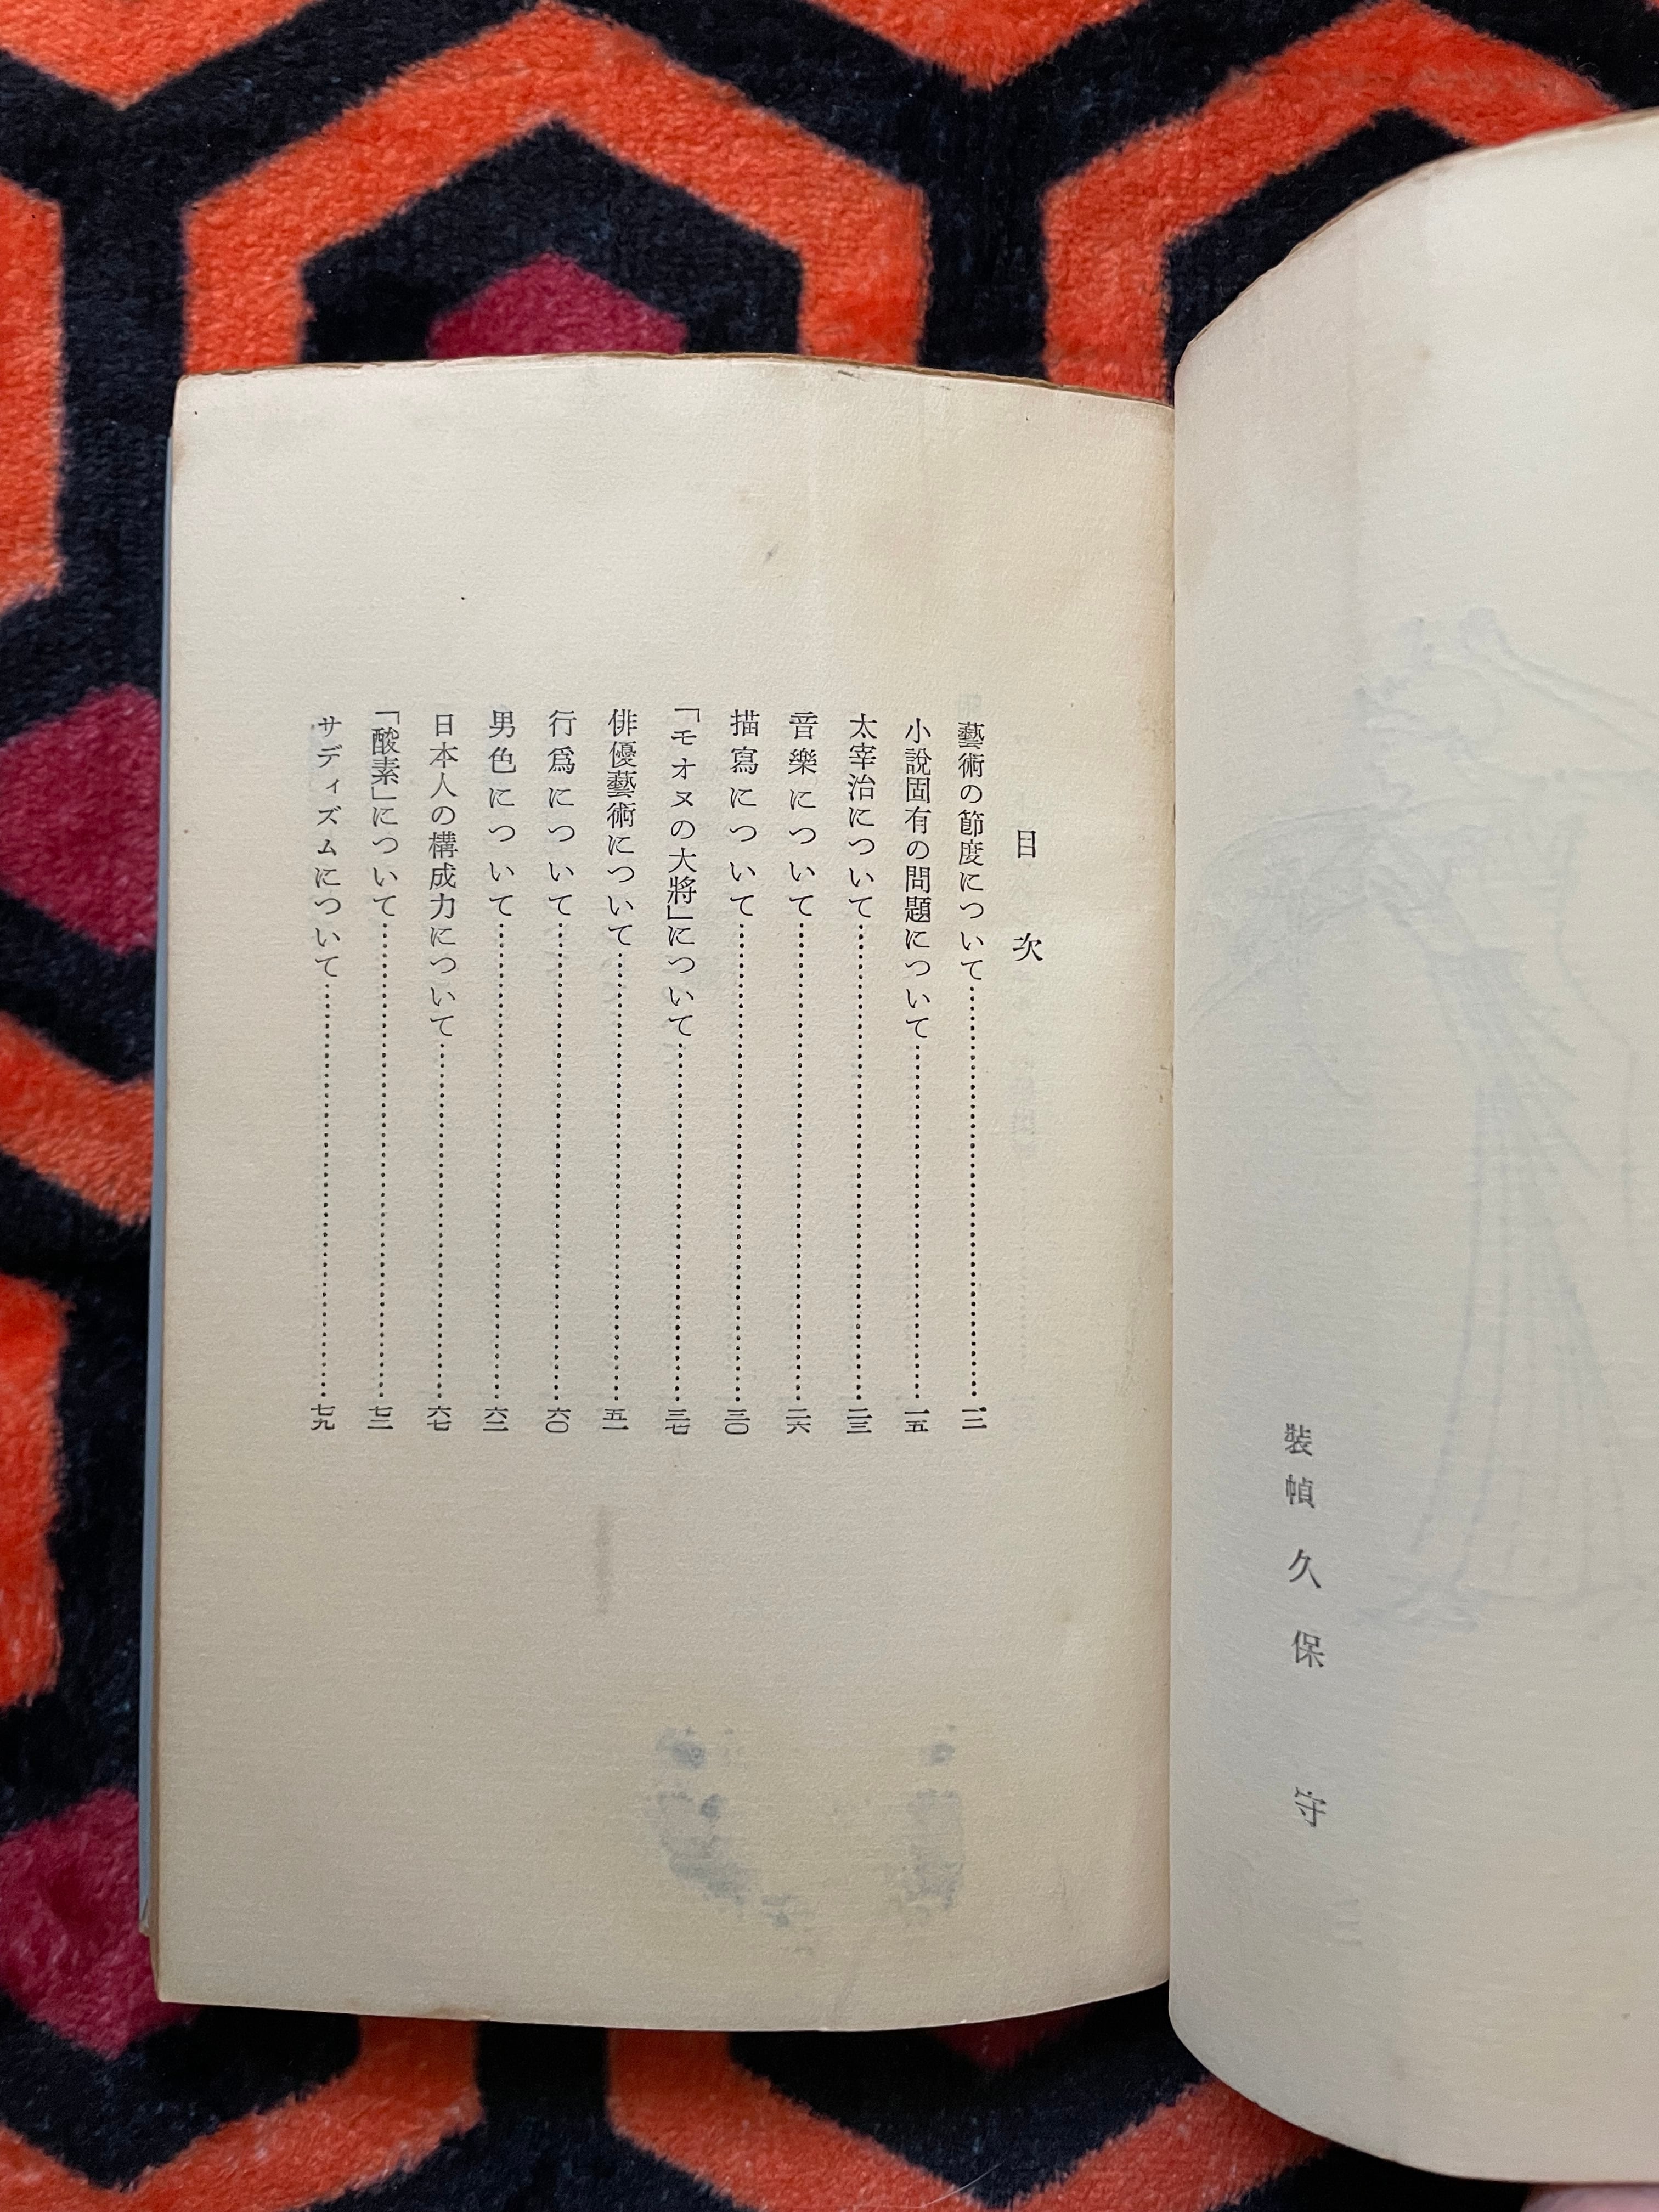 裝幀 久保 守
目次
藝術の節度について…………一二
小說固有の問題について…………一五
太宰治について…………二三
音樂について…………二六
描寫について…………三〇
「モオヌの大將」について…………三七
俳優藝術について…………五一
行爲について…………六〇
男色について…………六二
日本人の構成力について…………六七
「酸素」について…………七二
サディズムについて…………七九